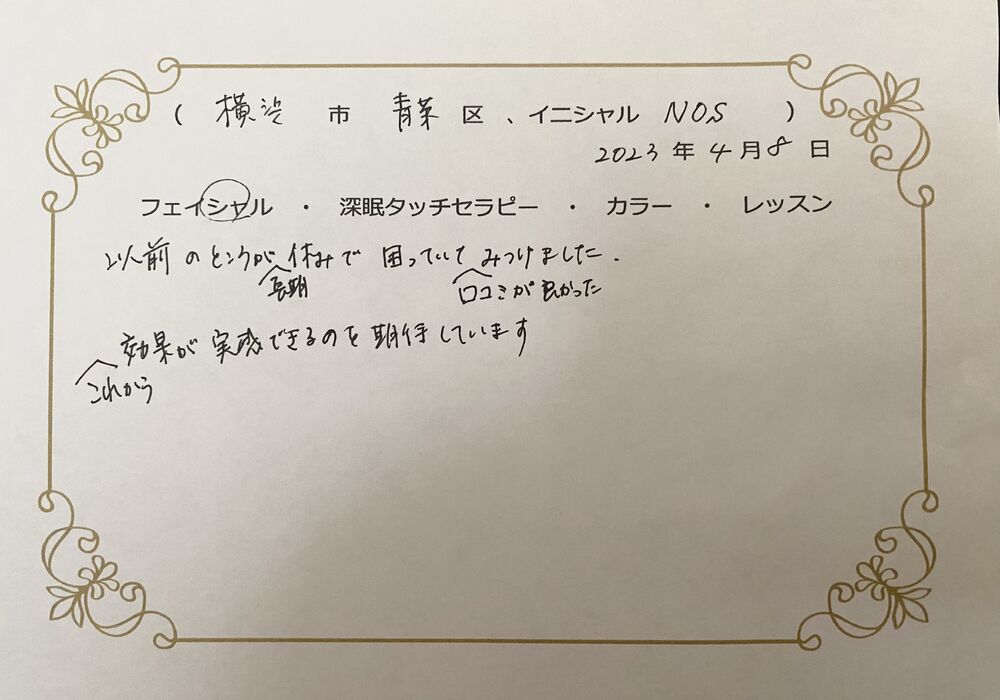 ( 横浜 市 青葉 区 、イニシャル NOS )
2023 年 4 月 8 日
フェイシャル ・ 深眠タッチセラピー ・ カラー ・ レッスン
以前のところが休みで 困っていて みつけました.
長期 口コミが良かった
効果が実感できるのを期待しています
これから